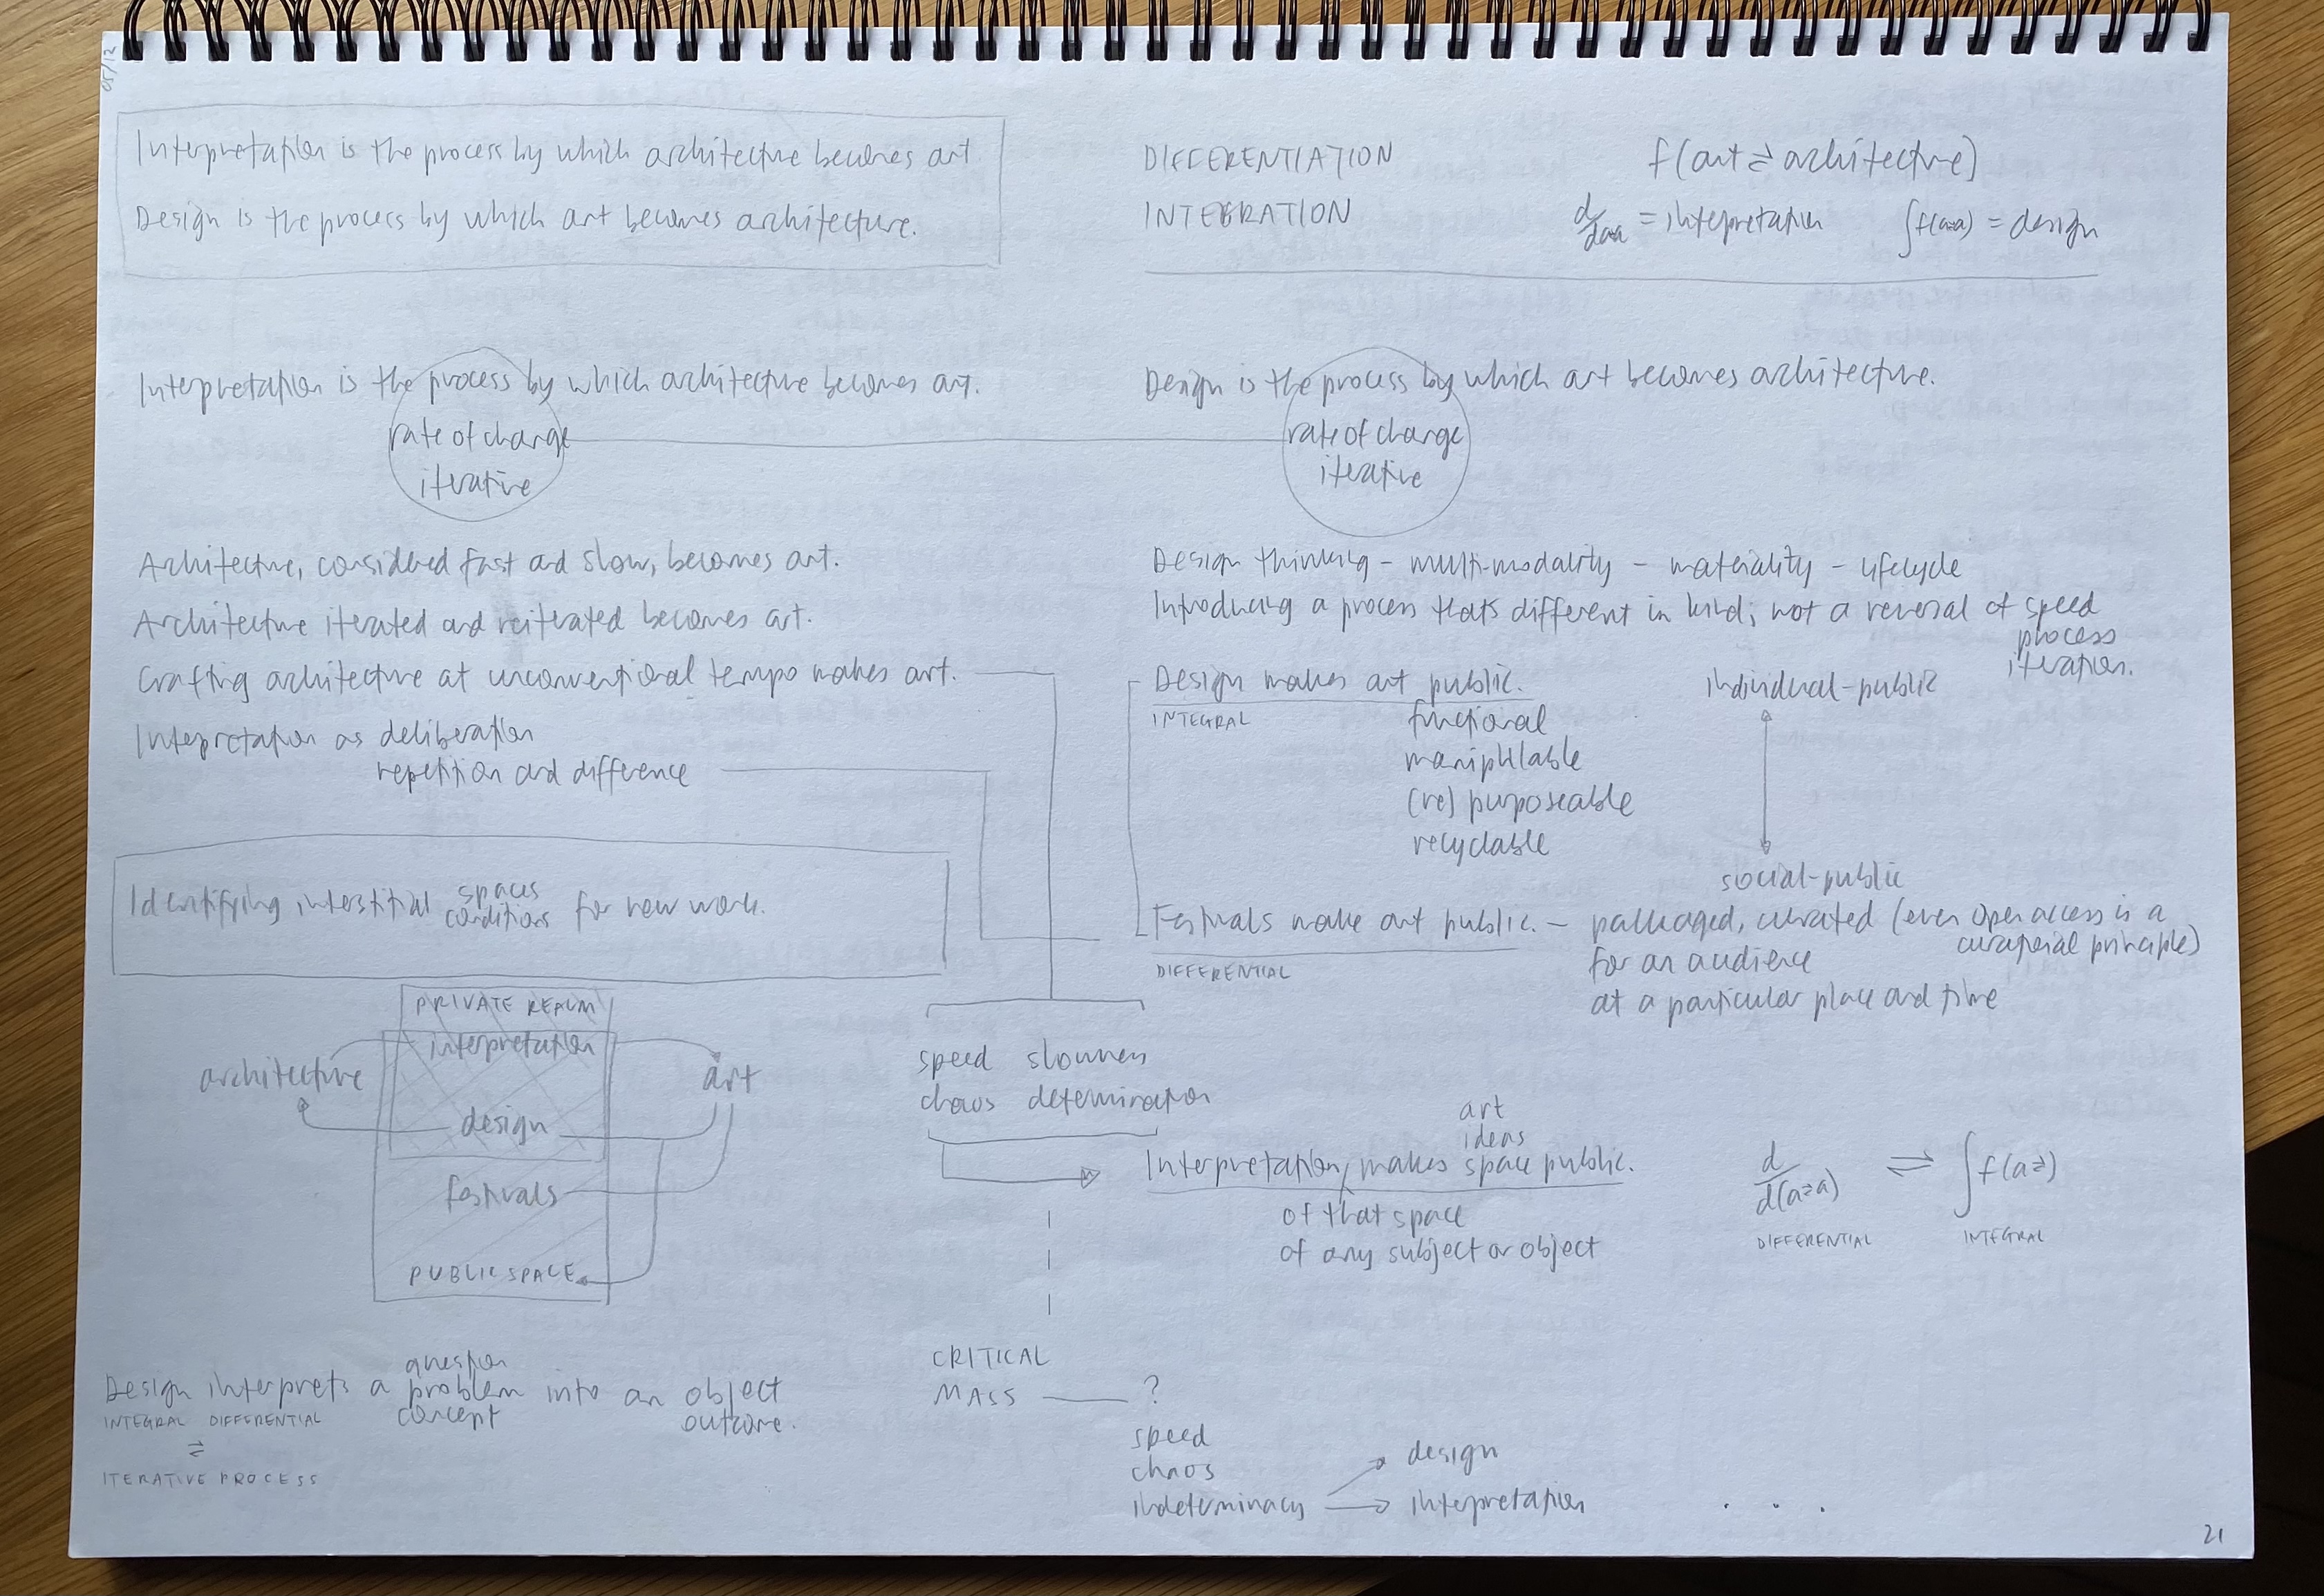 05/12
Interpretation is the process by which architecture becomes art
Design is the process by which art becomes architecture.
DIFFERENTIATION
INTEGRATION
f(art ⇌ architecture)
d/da⇌a = interpretation
∫f(a⇌a) = design
Interpretation is the process by which architecture becomes art.
rate of change
iterative
Design is the process by which art becomes architecture.
rate of change
iterative
Architecture, considered fast and slow, becomes art.
Architecture iterated and reiterated becomes art.
Crafting architecture at unconventional tempo makes art.
Interpretation as deliberation
repetition and difference
Design thinking – multi-modality – materiality – lifecycle
Introducing a process that's different in kind, not a reversal of speed
process
iteration.
Design makes art public.
INTEGRAL
functional
maniplulable
(re) purposeable
recyclable
individual-public
social-public
Festivals make art public. – packaged, curated (even open access is a
curatorial principle)
DIFFERENTIAL
for an audience
at a particular place and time
Identifying interstitial spaces
conditions for new work.
PRIVATE REALM
interpretation
architecture
art
design
festivals
PUBLIC SPACE
speed slowness
chaos determination
art
ideas
Interpretation makes space public.
of that space
of any subject or object
d/d(a⇌a) ⇌ ∫f(a⇌)
DIFFERENTIAL
INTEGRAL
question
Design interprets a problem into an object
INTEGRAL DIFFERENTIAL concept outcome.
⇌
ITERATIVE PROCESS
CRITICAL
MASS — ?
speed
chaos
indeterminacy
design
interpretation
. . .
21